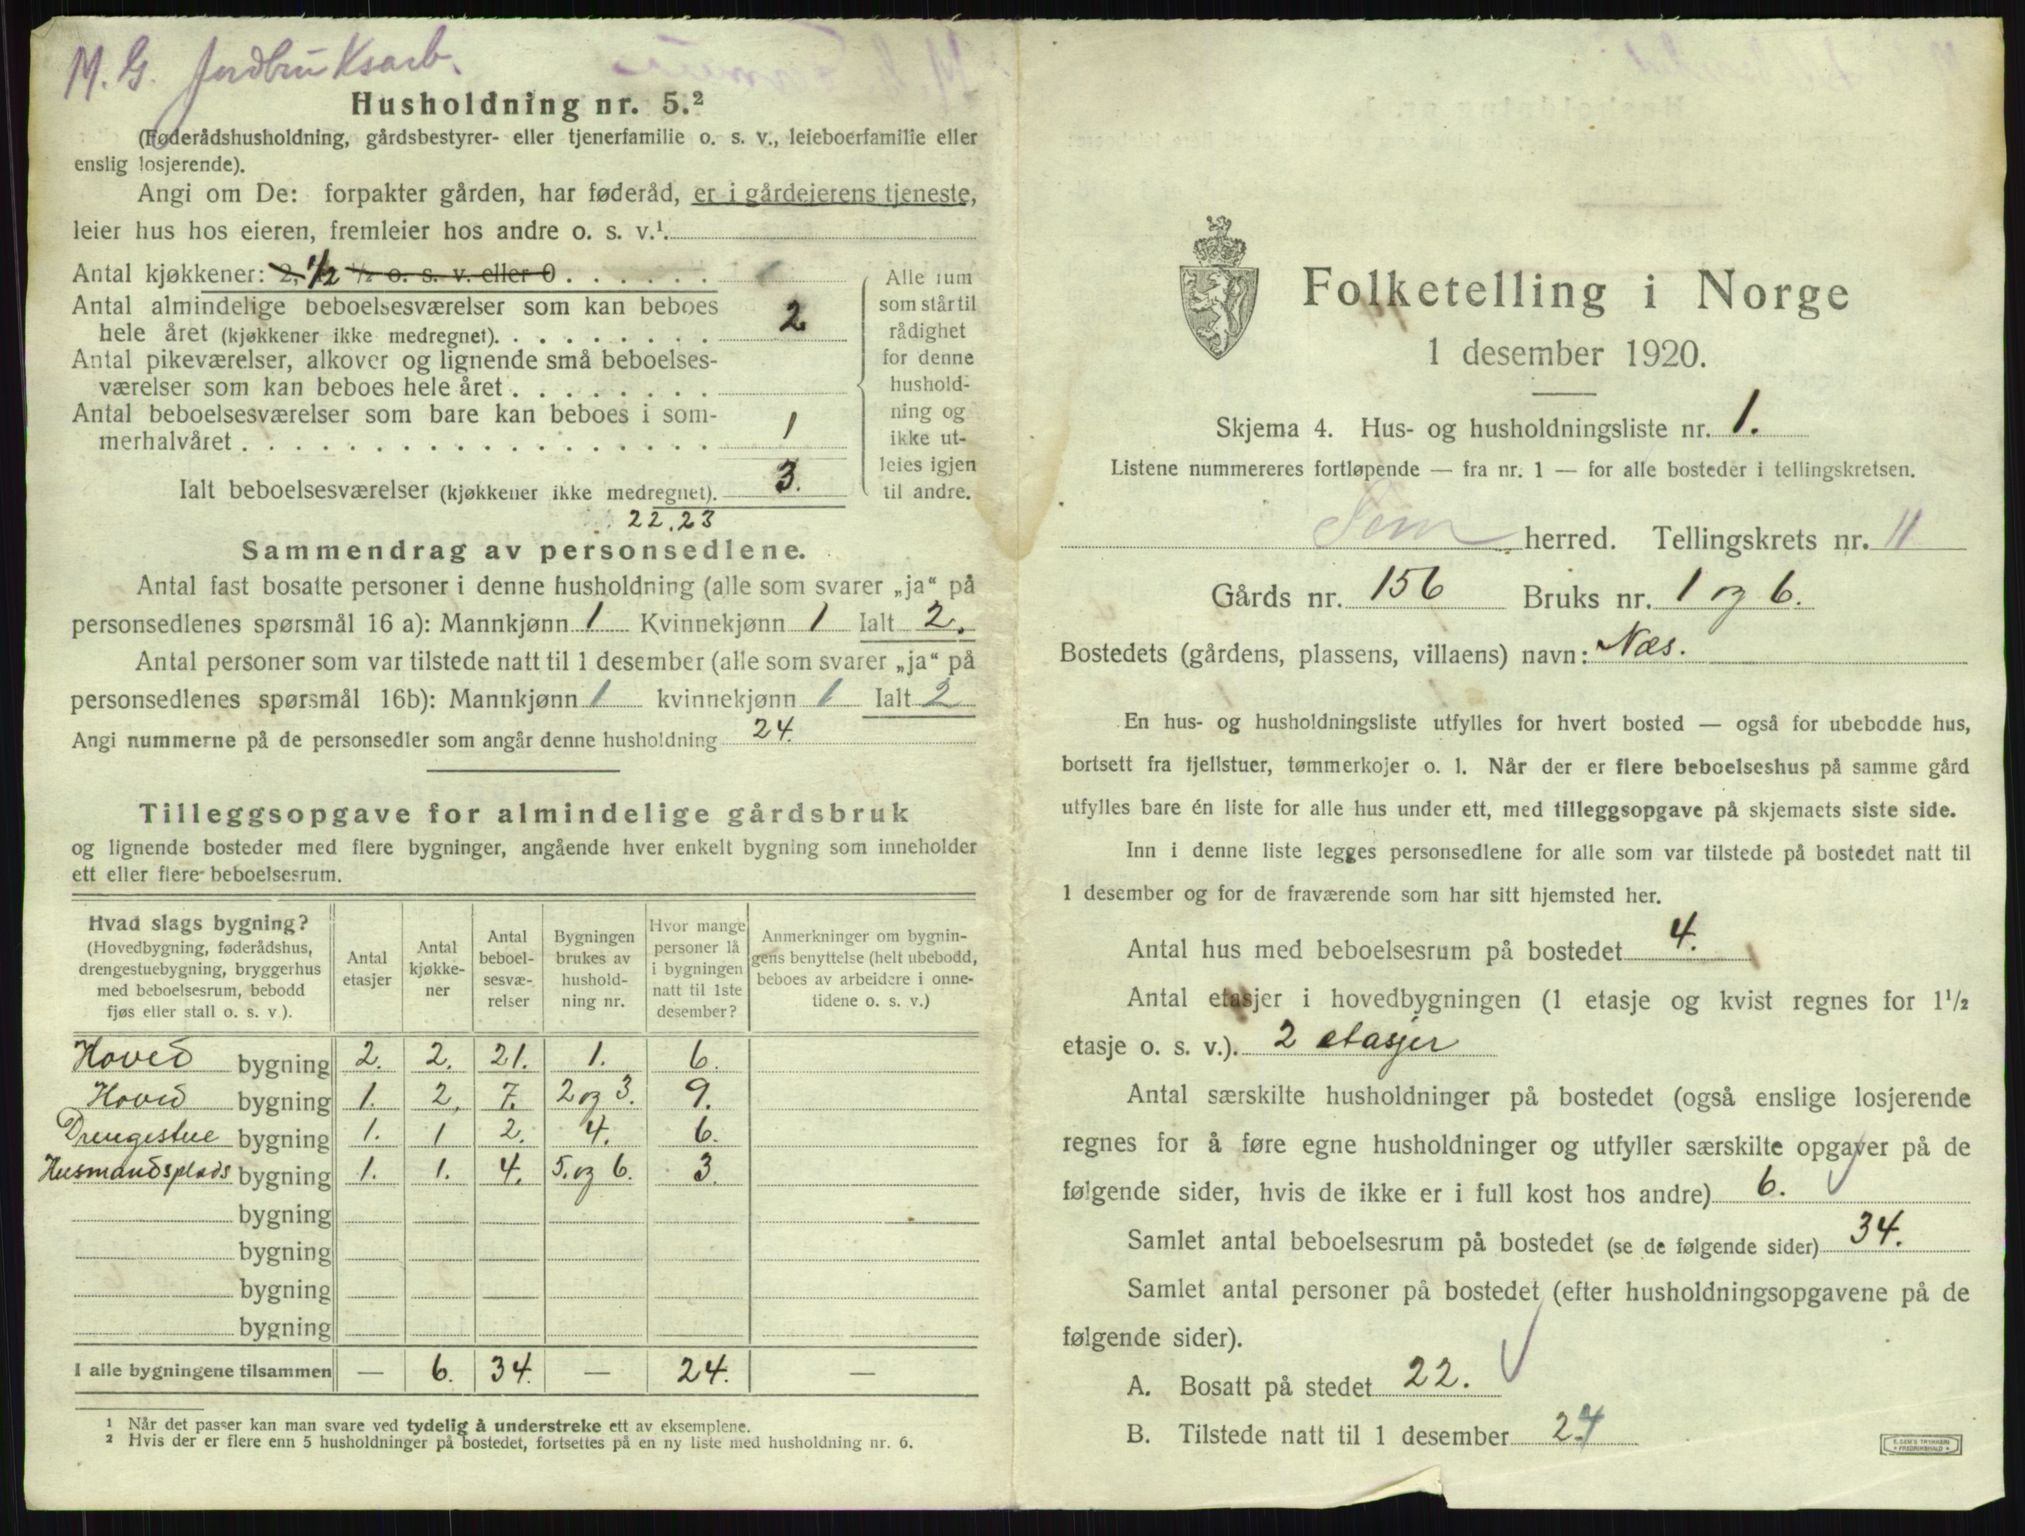 M. G. Jordbruksarb.
Husholdning nr. 5.²
(Føderådshusholdning, gårdsbestyrer- eller tjenerfamilie o. s. v., leieboerfamilie eller
enslig losjerende).
Angi om De: forpakter gården, har føderåd, er i gårdeierens tjeneste,
leier hus hos eieren, fremleier hos andre o. s. v.¹
Antal kjøkkener: 2, 1/2 ½ o. s. v. eller 0
Antal almindelige beboelsesværelser som kan beboes
hele året (kjøkkener ikke medregnet). 2
Antal pikeværelser, alkover og lignende små beboelses-
værelser som kan beboes hele året
Antal beboelsesværelser som bare kan beboes i som-
merhalvåret 1
Ialt beboelsesværelser (kjøkkener ikke medregnet). 3.
Alle rum
som står til
rådighet
for denne
hushold-
ning og
ikke ut-
leies igjen
til andre.
22, 23
Sammendrag av personsedlene.
Antal fast bosatte personer i denne husholdning (alle som svarer „ja“ på
personsedlenes spørsmål 16 a): Mannkjønn 1 Kvinnekjønn 1 Ialt 2.
Antal personer som var tilstede natt til 1 desember (alle som svarer „ja“ på
personsedlenes spørsmål 16b): Mannkjønn 1 kvinnekjønn 1 Ialt 2
Angi nummerne på de personsedler som angår denne husholdning 24.
Tilleggsopgave for almindelige gårdsbruk
og lignende bosteder med flere bygninger, angående hver enkelt bygning som inneholder
ett eller flere beboelsesrum.
Hvad slags bygning? (Hovedbygning, føderådshus, drengestuebygning, bryggerhus med beboelsesrum, bebodd fjøs eller stall o. s. v.).
Antal etasjer
Antal kjøkke-ner
Antal beboel-sesvæ-relser
Bygningen brukes av hushold-ning nr.
Hvor mange personer lå i bygningen natt til 1ste desember?
Anmerkninger om bygnin-gens benyttelse (helt ubebodd, beboes av arbeidere i onne-tidene o. s. v.)
Hoved bygning 2. 2. 21. 1. 6.
Hoved bygning 1. 2, 7. 2 og 3. 9.
Drengestue bygning 1. 1 2. 4. 6.
Husmandsplads bygning 1. 1. 4. 5. og 6. 3.
bygning
bygning
bygning
bygning
I alle bygningene tilsammen — 6. 34. — 24. —
¹ Når det passer kan man svare ved tydelig å understreke ett av eksemplene.
² Hvis der er flere enn 5 husholdninger på bostedet, fortsettes på en ny liste med husholdning nr. 6.
Folketelling i Norge
1 desember 1920.
Skjema 4. Hus- og husholdningsliste nr. 1.
Listene nummereres fortløpende — fra nr. 1 — for alle bosteder i tellingskretsen.
Sem herred. Tellingskrets nr. 11
Gårds nr. 156 Bruks nr. 1 og 6.
Bostedets (gårdens, plassens, villaens) navn: Næs.
En hus- og husholdningsliste utfylles for hvert bosted — også for ubebodde hus,
bortsett fra fjellstuer, tømmerkojer o. l. Når der er flere beboelseshus på samme gård
utfylles bare én liste for alle hus under ett, med tilleggsopgave på skjemaets siste side.
Inn i denne liste legges personsedlene for alle som var tilstede på bostedet natt til
1 desember og for de fraværende som har sitt hjemsted her.
Antal hus med beboelsesrum på bostedet 4.
Antal etasjer i hovedbygningen (1 etasje og kvist regnes for 1½
etasje o. s. v.). 2 etasjer
Antal særskilte husholdninger på bostedet (også enslige losjerende
regnes for å føre egne husholdninger og utfyller særskilte opgaver på de
følgende sider, hvis de ikke er i full kost hos andre) 6.
Samlet antal beboelsesrum på bostedet (se de følgende sider) 34.
Samlet antal personer på bostedet (efter husholdningsopgavene på de
følgende sider).
A. Bosatt på stedet 22.
B. Tilstede natt til 1 desember 24
E. SEM'S TRYKKERI
FREDRIKSHALD